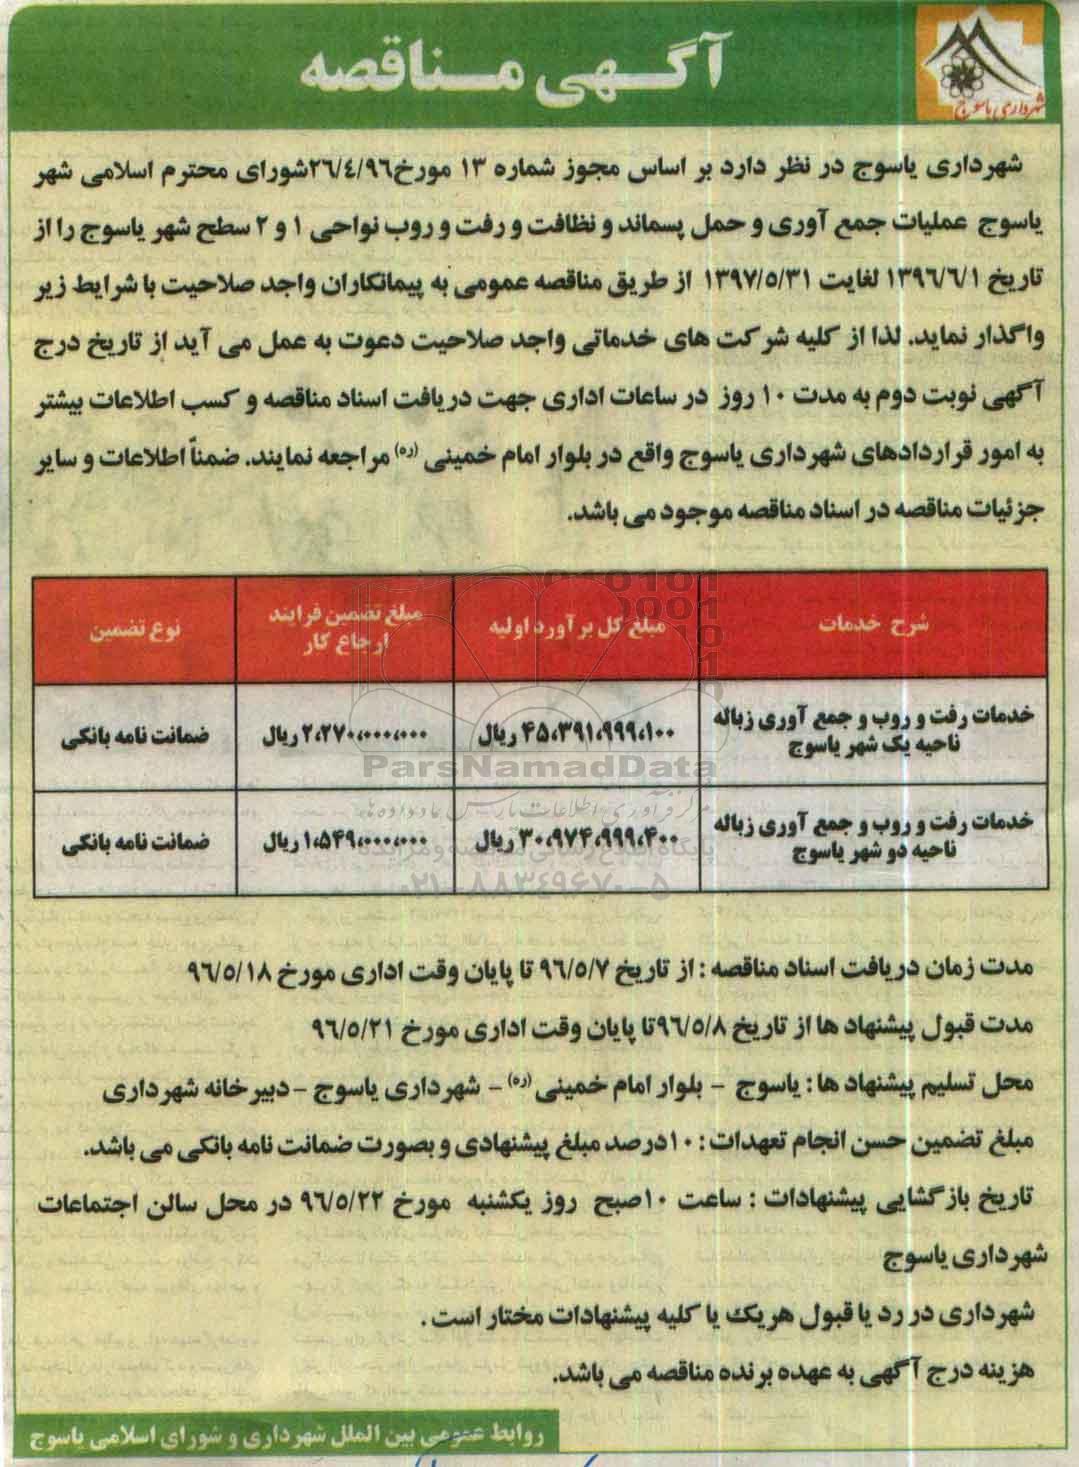 آگهی مناقصه
شهرداری یاسوج
شهرداری یاسوج در نظر دارد بر اساس مجوز شماره ۱۳ مورخ۲۶/۴/۹۶شورای محترم اسلامی شهر
یاسوج عملیات جمع آوری و حمل پسماند و نظافت و رفت و روب نواحی ۱ و ۲ سطح شهر یاسوج را از
تاریخ ۱۳۹۶/۶/۱ لغایت ۱۳۹۷/۵/۳۱ از طریق مناقصه عمومی به پیمانکاران واجد صلاحیت با شرایط زیر
واگذار نماید. لذا از کلیه شرکت های خدماتی واجد صلاحیت دعوت به عمل می آید از تاریخ درج
آگهی نوبت دوم به مدت ۱۰ روز در ساعات اداری جهت دریافت اسناد مناقصه و کسب اطلاعات بیشتر
به امور قراردادهای شهرداری یاسوج واقع در بلوار امام خمینی (ره) مراجعه نمایند. ضمناً اطلاعات و سایر
جزئیات مناقصه در اسناد مناقصه موجود می باشد.
شرح خدمات
مبلغ کل برآورد اولیه
مبلغ تضمین فرایند
ارجاع کار
نوع تضمین
خدمات رفت و روب و جمع آوری زباله
ناحیه یک شهر یاسوج
۴۵،۳۹۱،۹۹۹،۱۰۰ ریال
۲،۲۷۰،۰۰۰،۰۰۰ ریال
ضمانت نامه بانکی
خدمات رفت و روب و جمع آوری زباله
ناحیه دو شهر یاسوج
۳۰،۹۷۴،۹۹۹،۴۰۰ ریال
۱،۵۴۹،۰۰۰،۰۰۰ ریال
ضمانت نامه بانکی
ParsNamadData
مرکز فرآوری اطلاعات پارس نماد داده ها
۰۲۱-۸۸۳۴۹۶۷۰-۵
مدت زمان دریافت اسناد مناقصه : از تاریخ ۹۶/۵/۷ تا پایان وقت اداری مورخ ۹۶/۵/۱۸
مدت قبول پیشنهاد ها از تاریخ ۹۶/۵/۸تا پایان وقت اداری مورخ ۹۶/۵/۲۱
محل تسلیم پیشنهاد ها : یاسوج - بلوار امام خمینی (ره) - شهرداری یاسوج - دبیرخانه شهرداری
مبلغ تضمین حسن انجام تعهدات : ۱۰درصد مبلغ پیشنهادی و بصورت ضمانت نامه بانکی می باشد.
تاریخ بازگشایی پیشنهادات : ساعت ۱۰صبح روز یکشنبه مورخ ۹۶/۵/۲۲ در محل سالن اجتماعات
شهرداری یاسوج
شهرداری در رد یا قبول هریک یا کلیه پیشنهادات مختار است .
هزینه درج آگهی به عهده برنده مناقصه می باشد.
روابط عمومی بین الملل شهرداری و شورای اسلامی یاسوج